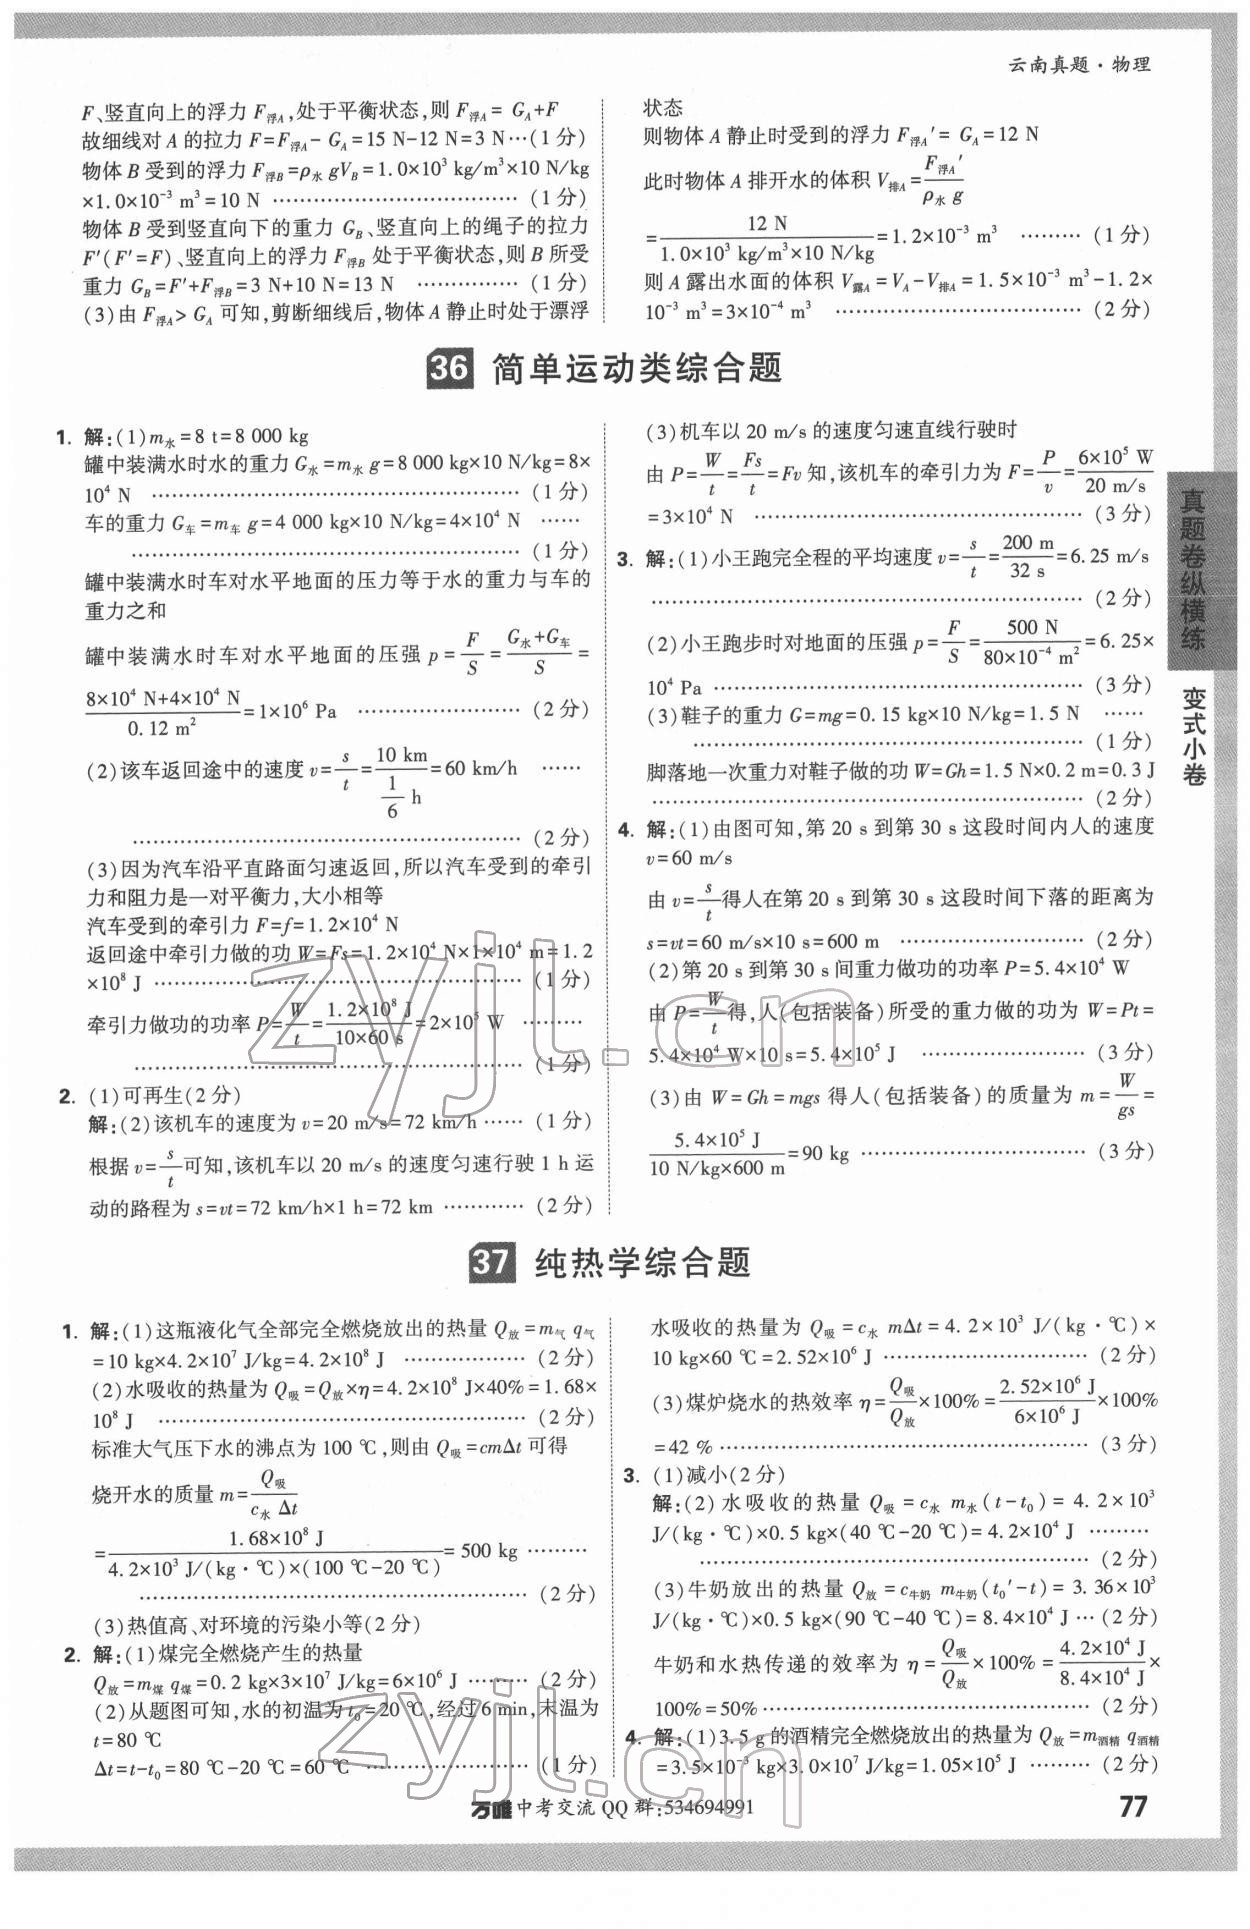 云南真题·物理
F、竖直向上的浮力 F浮A,处于平衡状态,则 F浮A= GA+F
故细线对 A 的拉力 F=F浮A- GA=15 N-12 N=3 N…(1 分)
物体 B 受到的浮力 F浮B=ρ水 gVB=1.0×10³ kg/m³×10 N/kg
×1.0×10⁻³ m³=10 N ……………………………(1 分)
物体 B 受到竖直向下的重力 GB、竖直向上的绳子的拉力
F′(F′=F)、竖直向上的浮力 F浮B 处于平衡状态,则 B 所受
重力 GB=F′+F浮B=3 N+10 N=13 N ……………(1 分)
(3)由 F浮A> GA 可知,剪断细线后,物体 A 静止时处于漂浮
状态
则物体 A 静止时受到的浮力 F浮A′= GA=12 N
此时物体 A 排开水的体积 V排A=F浮A′/ρ水 g
=12 N/1.0×10³ kg/m³×10 N/kg=1.2×10⁻³ m³ ………(1 分)
则 A 露出水面的体积 V露A=VA-V排A=1.5×10⁻³ m³-1.2×
10⁻³ m³=3×10⁻⁴ m³ ……………………………(2 分)
36 简单运动类综合题
1. 解:(1)m水=8 t=8 000 kg
罐中装满水时水的重力 G水=m水 g=8 000 kg×10 N/kg=8×
10⁴ N ……………………………………………(1 分)
车的重力 G车=m车 g=4 000 kg×10 N/kg=4×10⁴ N ……
………………………………………………(1 分)
罐中装满水时车对水平地面的压力等于水的重力与车的
重力之和
罐中装满水时车对水平地面的压强 p=F/S=G水+G车/S=
8×10⁴ N+4×10⁴ N/0.12 m²=1×10⁶ Pa ……………………(2 分)
(2)该车返回途中的速度 v=s/t=10 km/(1/6 h)=60 km/h ……
………………………………………………(2 分)
(3)因为汽车沿平直路面匀速返回,所以汽车受到的牵引
力和阻力是一对平衡力,大小相等
汽车受到的牵引力 F=f=1.2×10⁴ N
返回途中牵引力做的功 W=Fs=1.2×10⁴ N×1×10⁴ m=1.2
×10⁸ J ……………………………………………(1 分)
牵引力做功的功率 P=W/t=1.2×10⁸ J/10×60 s=2×10⁵ W ………
………………………………………………(1 分)
2. (1)可再生(2 分)
解:(2)该机车的速度为 v=20 m/s=72 km/h ……(1 分)
根据 v=s/t可知,该机车以 20 m/s 的速度匀速行驶 1 h 运
动的路程为 s=vt=72 km/h×1 h=72 km …………(2 分)
(3)机车以 20 m/s 的速度匀速直线行驶时
由 P=W/t=Fs/t=Fv 知,该机车的牵引力为 F=P/v=6×10⁵ W/20 m/s
=3×10⁴ N ………………………………………(3 分)
3. 解:(1)小王跑完全程的平均速度 v=s/t=200 m/32 s=6.25 m/s
……………………………………………………(2 分)
(2)小王跑步时对地面的压强 p=F/S=500 N/80×10⁻⁴ m²=6.25×
10⁴ Pa ……………………………………………(3 分)
(3)鞋子的重力 G=mg=0.15 kg×10 N/kg=1.5 N ……
………………………………………………(1 分)
脚落地一次重力对鞋子做的功 W=Gh=1.5 N×0.2 m=0.3 J
……………………………………………………(2 分)
4. 解:(1)由图可知,第 20 s 到第 30 s 这段时间内人的速度
v=60 m/s
由 v=s/t得人在第 20 s 到第 30 s 这段时间下落的距离为
s=vt=60 m/s×10 s=600 m ………………………(2 分)
(2)第 20 s 到第 30 s 间重力做功的功率 P=5.4×10⁴ W
由 P=W/t得,人(包括装备)所受的重力做的功为 W=Pt=
5.4×10⁴ W×10 s=5.4×10⁵ J ……………………(3 分)
(3)由 W=Gh=mgs 得人(包括装备)的质量为 m=W/gs=
5.4×10⁵ J/10 N/kg×600 m=90 kg ……………………………(3 分)
真题卷纵横练
变式小卷
37 纯热学综合题
1. 解:(1)这瓶液化气全部完全燃烧放出的热量 Q放=m气 q气
=10 kg×4.2×10⁷ J/kg=4.2×10⁸ J ………………(2 分)
(2)水吸收的热量为 Q吸=Q放×η=4.2×10⁸ J×40%=1.68×
10⁸ J ……………………………………………(2 分)
标准大气压下水的沸点为 100 ℃,则由 Q吸=cmΔt 可得
烧开水的质量 m=Q吸/c水 Δt
=1.68×10⁸ J/4.2×10³ J/(kg·℃)×(100 ℃-20 ℃)=500 kg ………
………………………………………………(2 分)
(3)热值高、对环境的污染小等(2 分)
2. 解:(1)煤完全燃烧产生的热量
Q放=m煤 q煤=0.2 kg×3×10⁷ J/kg=6×10⁶ J ………(2 分)
(2)从题图可知,水的初温为 t₀=20 ℃,经过 6 min,末温为
t=80 ℃
Δt=t-t₀=80 ℃-20 ℃=60 ℃ ……………………(1 分)
水吸收的热量为 Q吸=c水 mΔt=4.2×10³ J/(kg·℃)×
10 kg×60 ℃=2.52×10⁶ J …………………………(2 分)
(3)煤炉烧水的热效率 η=Q吸/Q放×100%=2.52×10⁶ J/6×10⁶ J×100%
=42 % ……………………………………………(3 分)
3. (1)减小(2 分)
解:(2)水吸收的热量 Q吸=c水 m水(t-t₀)=4.2×10³
J/(kg·℃)×0.5 kg×(40 ℃-20 ℃)=4.2×10⁴ J ………
………………………………………………(2 分)
(3)牛奶放出的热量 Q放=c牛奶 m牛奶(t₀′-t)=3.36×10³
J/(kg·℃)×0.5 kg×(90 ℃-40 ℃)=8.4×10⁴ J …(2 分)
牛奶和水热传递的效率为 η=Q吸/Q放×100%=4.2×10⁴ J/8.4×10⁴ J×
100%=50% ………………………………………(2 分)
4. 解:(1)3.5 g 的酒精完全燃烧放出的热量为 Q放=m酒精 q酒精
=3.5×10⁻³ kg×3.0×10⁷ J/kg=1.05×10⁵ J ………(2 分)
万唯中考交流 QQ 群:534694991
77
zyjl.cn
zyjl.cn